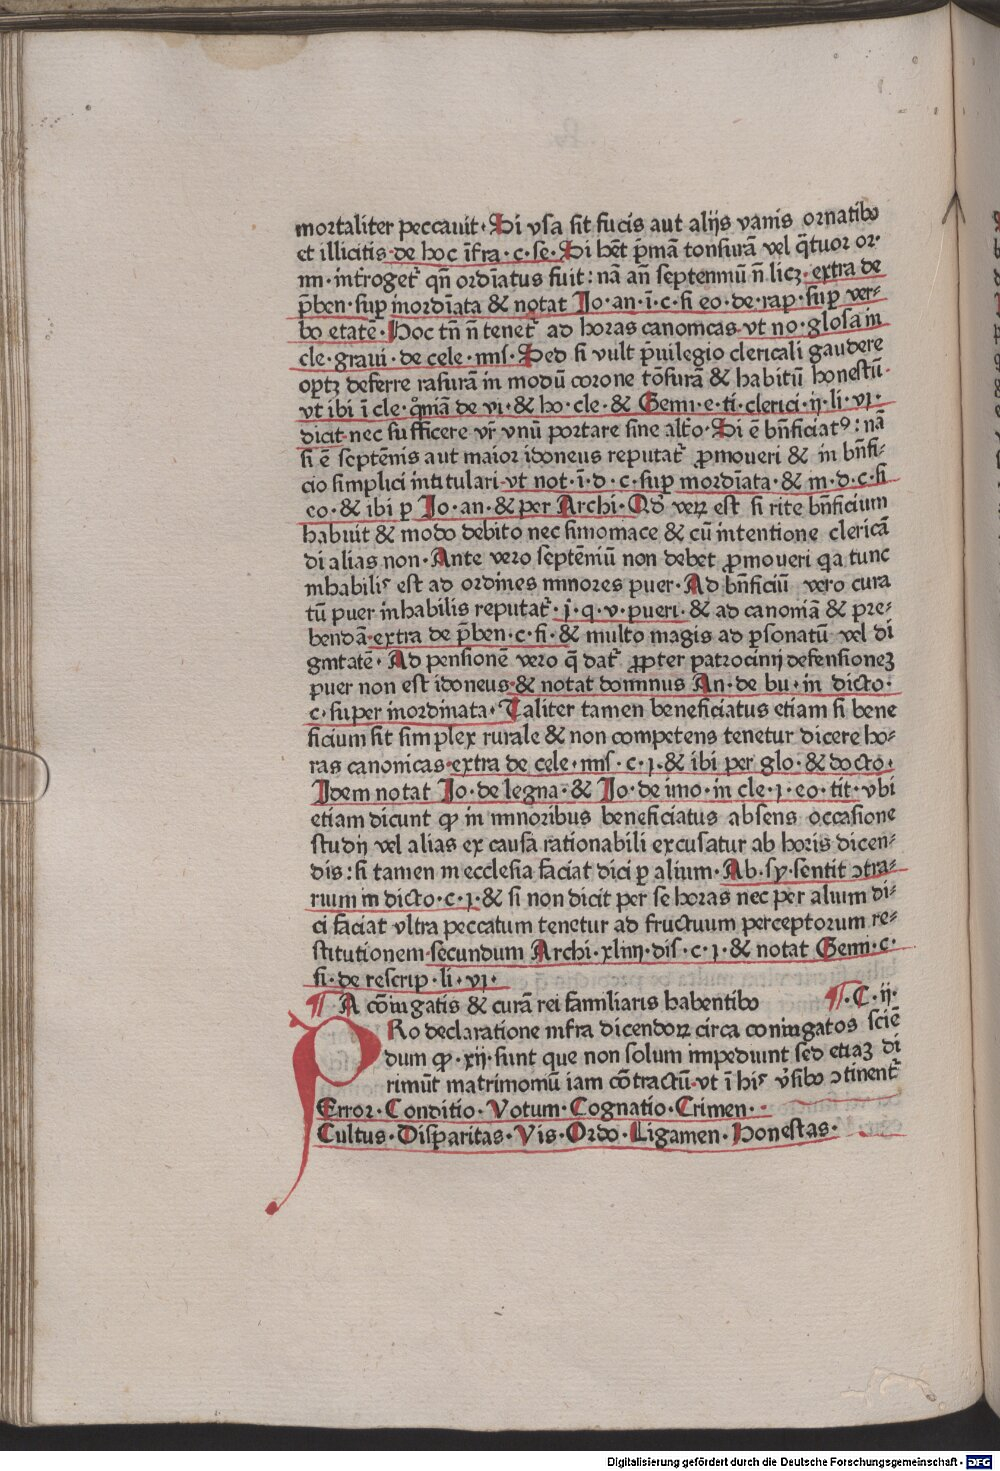 mortaliter peccauit· Si vsa sit fucis aut alijs vanis ornatibꝰ
et illicitis·de hoc īfra·c·se·Si hēt p̄mā tonsurā vel q̄tuor or·
mi·int̄roget᷑ qn̄ ordīatus fuit: nā an̄ septenniū n̄ licꝫ·extra de
p̄ben·sup̱ inordīata & notat Io·an·ī·c·si eo·de·rap·sup̱ ver⸗
bo etatē·Hoc tn̄ n̄ tenet᷑ ad horas canonicas·vt no·glosa in
cle·graui·de cele·mis·Sed si vult p̄uilegio clericali gaudere
oꝑtꝫ deferre rasurā in modū corone tōsurā & habitū honestū·
vt ibi ī cle·qm̄iā de vi·& ho·cle·& Gemi·e·ti·clerici·ij·li·vj·
dicit·nec sufficere vr̄ vnū portare sine alt̄o·Si ē bn̄ficiatꝰ: nā
si ē septēnis aut maior idoneus reputat᷑ ꝓmoueri & in bn̄fi⸗
cio simplici intitulari·vt not·ī·d·c·sup̱ inordīata·& in·d·c·si
eo·& ibi ꝑ Io·an·& per Archi·Qd̄ veꝝ est si rite bn̄ficium
habuit & modo debito nec simoniace & cū intentione clericā
di alias non·Ante vero septēniū non debet ꝓmoueri qa tunc
inhabilis est ad ordines minores puer·Ad bn̄ficiū vero cura
tū puer inhabilis reputat᷑·j·q·v·pueri·& ad canoniā & pre⸗
bendā·extra de p̄ben·c·fi·& multo magis ad ꝑsonatū vel di
gnitatē·Ad pensionē vero q̄ dat᷑ ꝓpter patrocinij defensioneꝫ
puer non est idoneus·& notat dominus An·de bu·in dicto·
c·super inordinata·Taliter tamen beneficiatus etiam si bene
ficium sit simplex rurale & non competens tenetur dicere ho⸗
ras canonicas·extra de cele·mis·c·j·& ibi per glo·& docto·
Idem notat Io·de legna·& Io·de imo·in cle·j·eo·tit·vbi
etiam dicunt ꝙ in minoribus beneficiatus absens occasione
studij vel alias ex causa rationabili excusatur ab horis dicen⸗
dis: si tamen in ecclesia faciat dici ꝑ alium·Ab·sy·sentit ↄtra⸗
rium in dicto·c·j·& si non dicit per se horas nec per alium di⸗
ci faciat vltra peccatum tenetur ad fructuum perceptorum re⸗
stitutionem·secundum Archi·xliiij·dis·c·j·& notat Gemi·c·
fi·de rescrip·li·vj·
¶·A cōiugatis & curā rei familiaris habentibꝰ ¶·C·ij·
PRo declaratione infra dicendoꝝ circa coniugatos sciē
dum ꝙ·xij·sunt que non solum impediunt sed etiaꝫ di
rimūt matrimoniū iam cōtractū·vt ī his v̄sibꝰ ↄtinent᷑
Error·Conditio·Votum·Cognatio·Crimen·
Cultus·Disparitas·Vis·Ordo·Ligamen·Honestas·
Digitalisierung gefördert durch die Deutsche Forschungsgemeinschaft - DFG